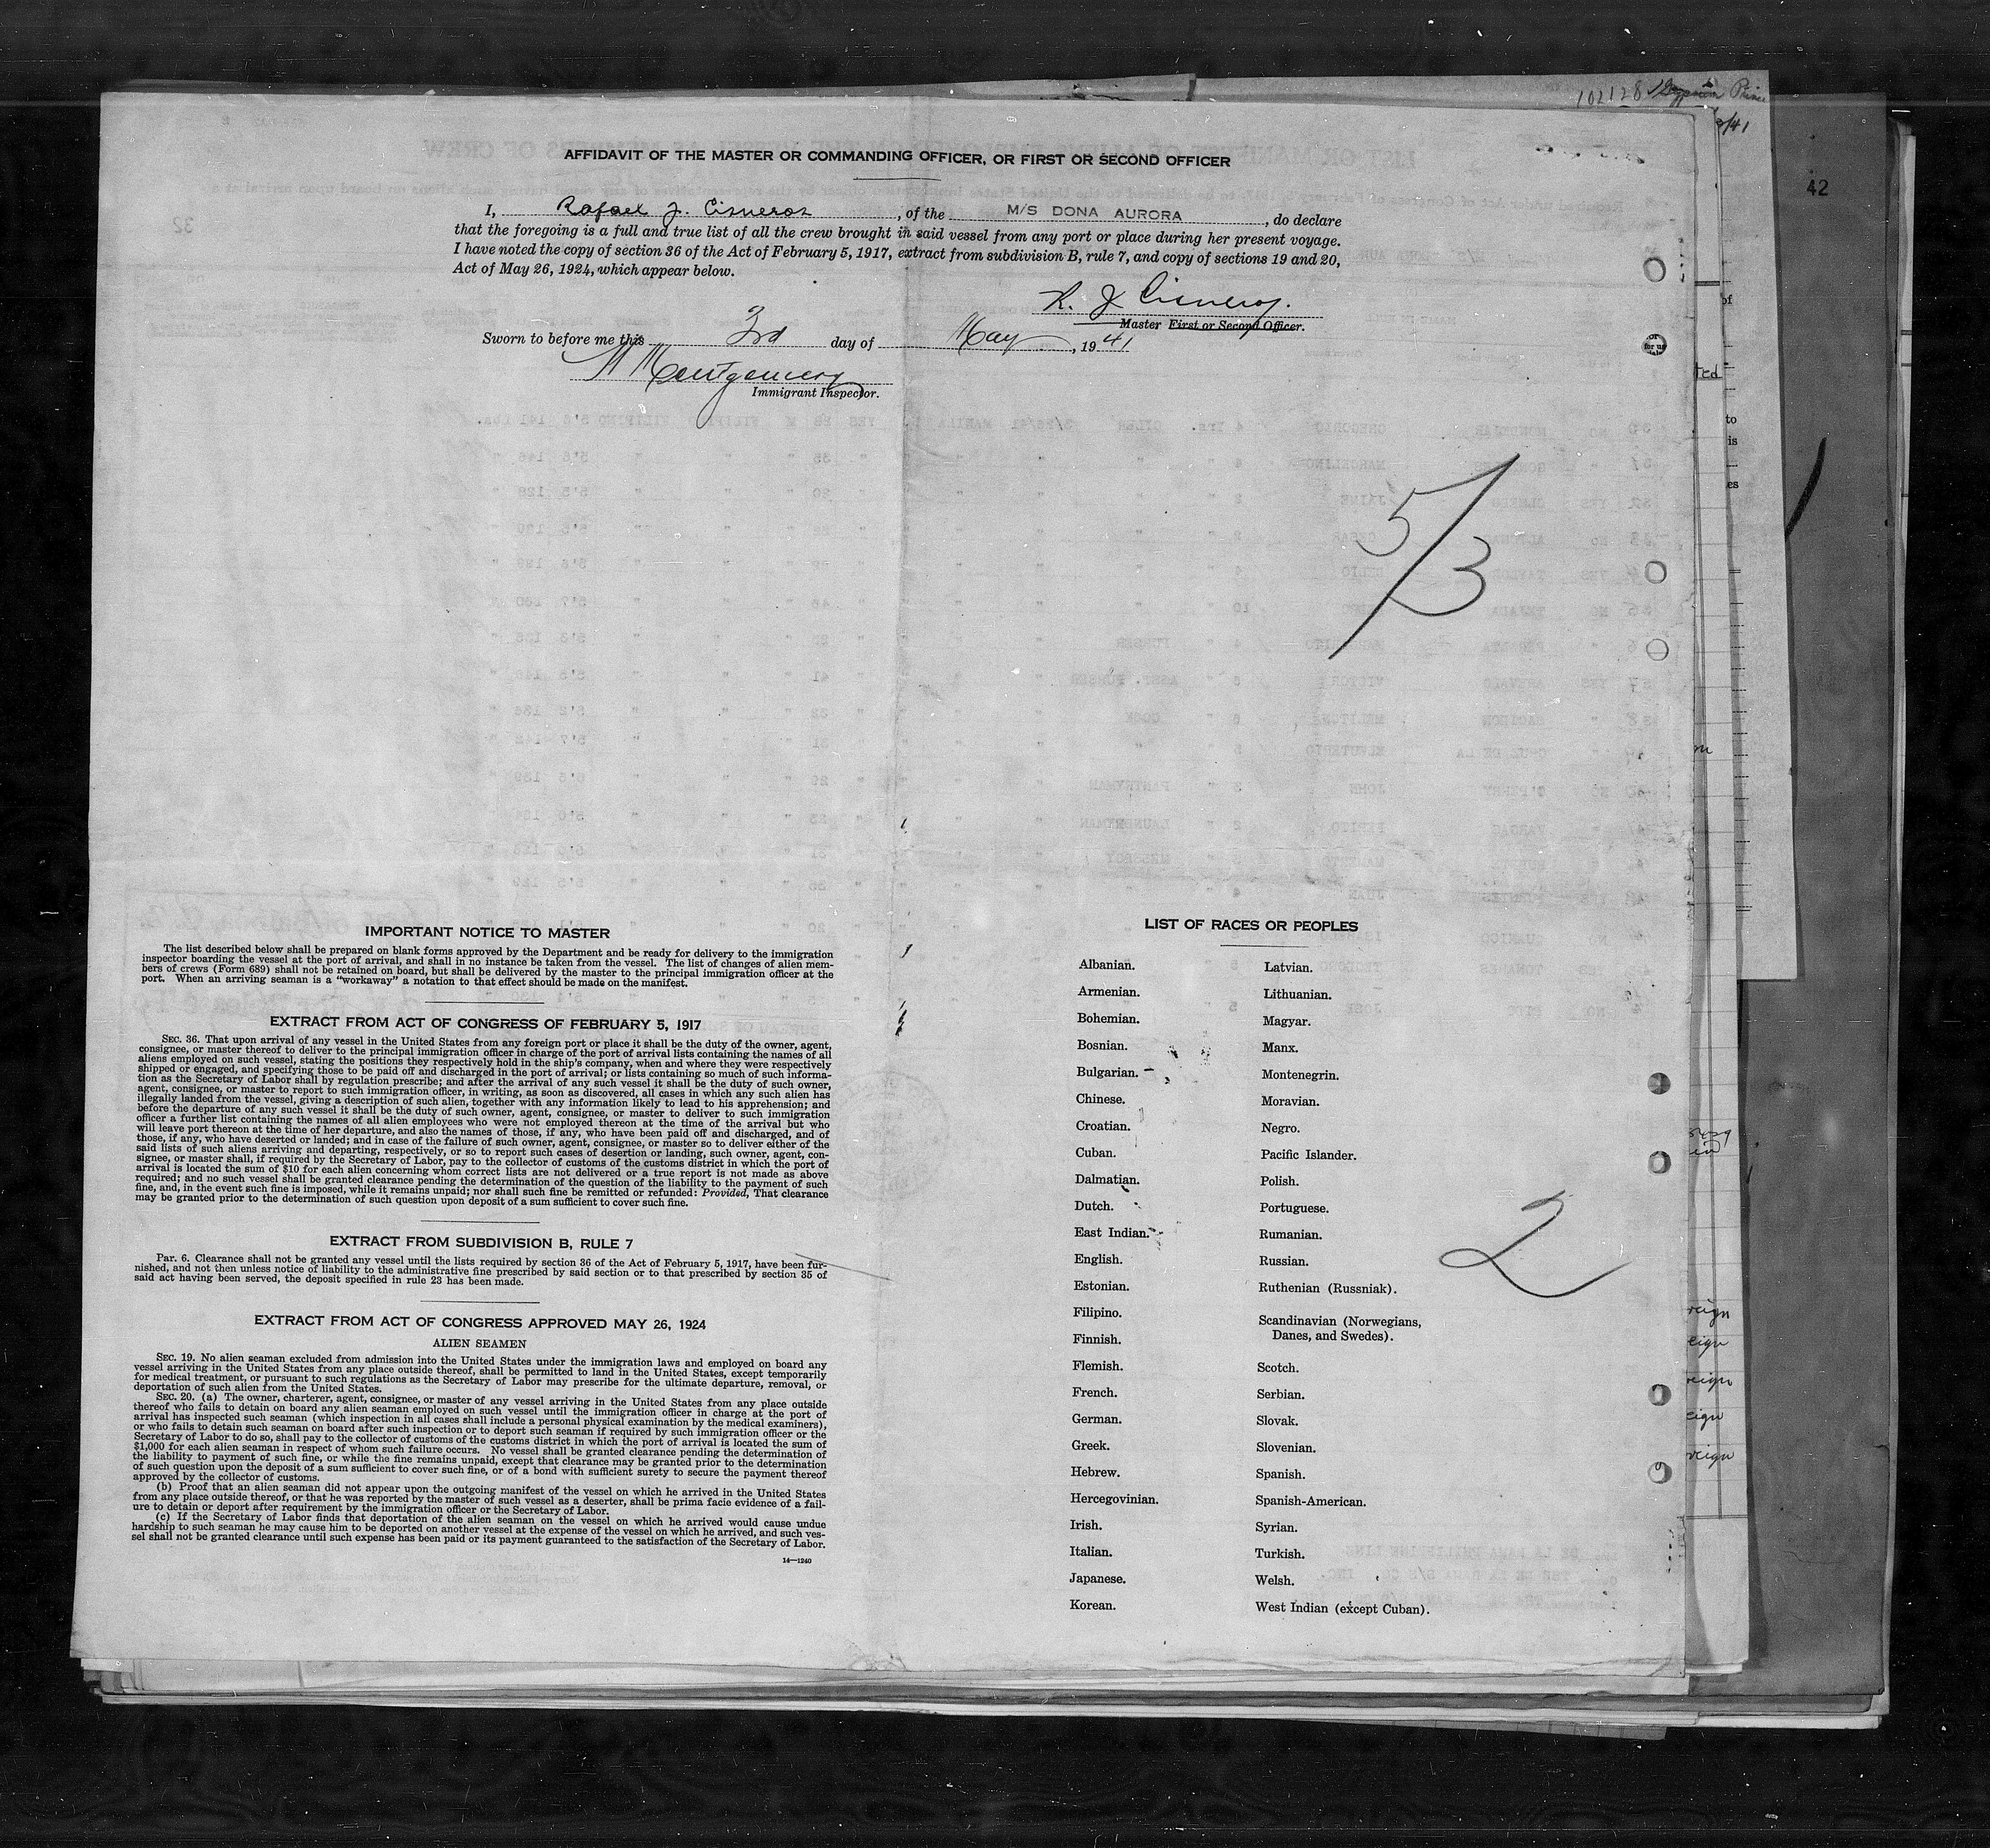 102128
42
AFFIDAVIT OF THE MASTER OR COMMANDING OFFICER, OR FIRST OR SECOND OFFICER
I, Rafael J. Cisneros, of the M/S DONA AURORA, do declare
that the foregoing is a full and true list of all the crew brought in said vessel from any port or place during her present voyage.
I have noted the copy of section 36 of the Act of February 5, 1917, extract from subdivision B, rule 7, and copy of sections 19 and 20,
Act of May 26, 1924, which appear below.
R. J Cisneros.
Master First or Second Officer.
Sworn to before me this 3rd day of May, 1941
Montgomery
Immigrant Inspector.
5/3
IMPORTANT NOTICE TO MASTER
The list described below shall be prepared on blank forms approved by the Department and be ready for delivery to the immigration
inspector boarding the vessel at the port of arrival, and shall in no instance be taken from the vessel. The list of changes of alien mem-
bers of crews (Form 689) shall not be retained on board, but shall be delivered by the master to the principal immigration officer at the
port. When an arriving seaman is a "workaway" a notation to that effect should be made on the manifest.
EXTRACT FROM ACT OF CONGRESS OF FEBRUARY 5, 1917
SEC. 36. That upon arrival of any vessel in the United States from any foreign port or place it shall be the duty of the owner, agent,
consignee, or master thereof to deliver to the principal immigration officer in charge of the port of arrival lists containing the names of all
aliens employed on such vessel, stating the positions they respectively hold in the ship's company, when and where they were respectively
shipped or engaged, and specifying those to be paid off and discharged in the port of arrival; or lists containing so much of such informa-
tion as the Secretary of Labor shall by regulation prescribe; and after the arrival of any such vessel it shall be the duty of such owner,
agent, consignee, or master to report to such immigration officer, in writing, as soon as discovered, all cases in which any such alien has
illegally landed from the vessel, giving a description of such alien, together with any information likely to lead to his apprehension; and
before the departure of any such vessel it shall be the duty of such owner, agent, consignee, or master to deliver to such immigration
officer a further list containing the names of all alien employees who were not employed thereon at the time of the arrival but who
will leave port thereon at the time of her departure, and also the names of those, if any, who have been paid off and discharged, and of
those, if any, who have deserted or landed; and in case of the failure of such owner, agent, consignee, or master so to deliver either of the
said lists of such aliens arriving and departing, respectively, or so to report such cases of desertion or landing, such owner, agent, con-
signee, or master shall, if required by the Secretary of Labor, pay to the collector of customs of the customs district in which the port of
arrival is located the sum of $10 for each alien concerning whom correct lists are not delivered or a true report is not made as above
required; and no such vessel shall be granted clearance pending the determination of the question of the liability to the payment of such
fine, and, in the event such fine is imposed, while it remains unpaid; nor shall such fine be remitted or refunded: Provided, That clearance
may be granted prior to the determination of such question upon deposit of a sum sufficient to cover such fine.
EXTRACT FROM SUBDIVISION B, RULE 7
Par. 6. Clearance shall not be granted any vessel until the lists required by section 36 of the Act of February 5, 1917, have been fur-
nished, and not then unless notice of liability to the administrative fine prescribed by said section or to that prescribed by section 35 of
said act having been served, the deposit specified in rule 23 has been made.
EXTRACT FROM ACT OF CONGRESS APPROVED MAY 26, 1924
ALIEN SEAMEN
SEC. 19. No alien seaman excluded from admission into the United States under the immigration laws and employed on board any
vessel arriving in the United States from any place outside thereof, shall be permitted to land in the United States, except temporarily
for medical treatment, or pursuant to such regulations as the Secretary of Labor may prescribe for the ultimate departure, removal, or
deportation of such alien from the United States.
SEC. 20. (a) The owner, charterer, agent, consignee, or master of any vessel arriving in the United States from any place outside
thereof who fails to detain on board any alien seaman employed on such vessel until the immigration officer in charge at the port of
arrival has inspected such seaman (which inspection in all cases shall include a personal physical examination by the medical examiners),
or who fails to detain such seaman on board after such inspection or to deport such seaman if required by such immigration officer or the
Secretary of Labor to do so, shall pay to the collector of customs of the customs district in which the port of arrival is located the sum of
$1,000 for each alien seaman in respect of whom such failure occurs. No vessel shall be granted clearance pending the determination of
the liability to payment of such fine, or while the fine remains unpaid, except that clearance may be granted prior to the determination
of such question upon the deposit of a sum sufficient to cover such fine, or of a bond with sufficient surety to secure the payment thereof
approved by the collector of customs.
(b) Proof that an alien seaman did not appear upon the outgoing manifest of the vessel on which he arrived in the United States
from any place outside thereof, or that he was reported by the master of such vessel as a deserter, shall be prima facie evidence of a fail-
ure to detain or deport after requirement by the immigration officer or the Secretary of Labor.
(c) If the Secretary of Labor finds that deportation of the alien seaman on the vessel on which he arrived would cause undue
hardship to such seaman he may cause him to be deported on another vessel at the expense of the vessel on which he arrived, and such ves-
sel shall not be granted clearance until such expense has been paid or its payment guaranteed to the satisfaction of the Secretary of Labor.
14—1240
LIST OF RACES OR PEOPLES
Albanian.
Armenian.
Bohemian.
Bosnian.
Bulgarian.
Chinese.
Croatian.
Cuban.
Dalmatian.
Dutch.
East Indian.
English.
Estonian.
Filipino.
Finnish.
Flemish.
French.
German.
Greek.
Hebrew.
Hercegovinian.
Irish.
Italian.
Japanese.
Korean.
Latvian.
Lithuanian.
Magyar.
Manx.
Montenegrin.
Moravian.
Negro.
Pacific Islander.
Polish.
Portuguese.
Rumanian.
Russian.
Ruthenian (Russniak).
Scandinavian (Norwegians,
Danes, and Swedes).
Scotch.
Serbian.
Slovak.
Slovenian.
Spanish.
Spanish-American.
Syrian.
Turkish.
Welsh.
West Indian (except Cuban).
2